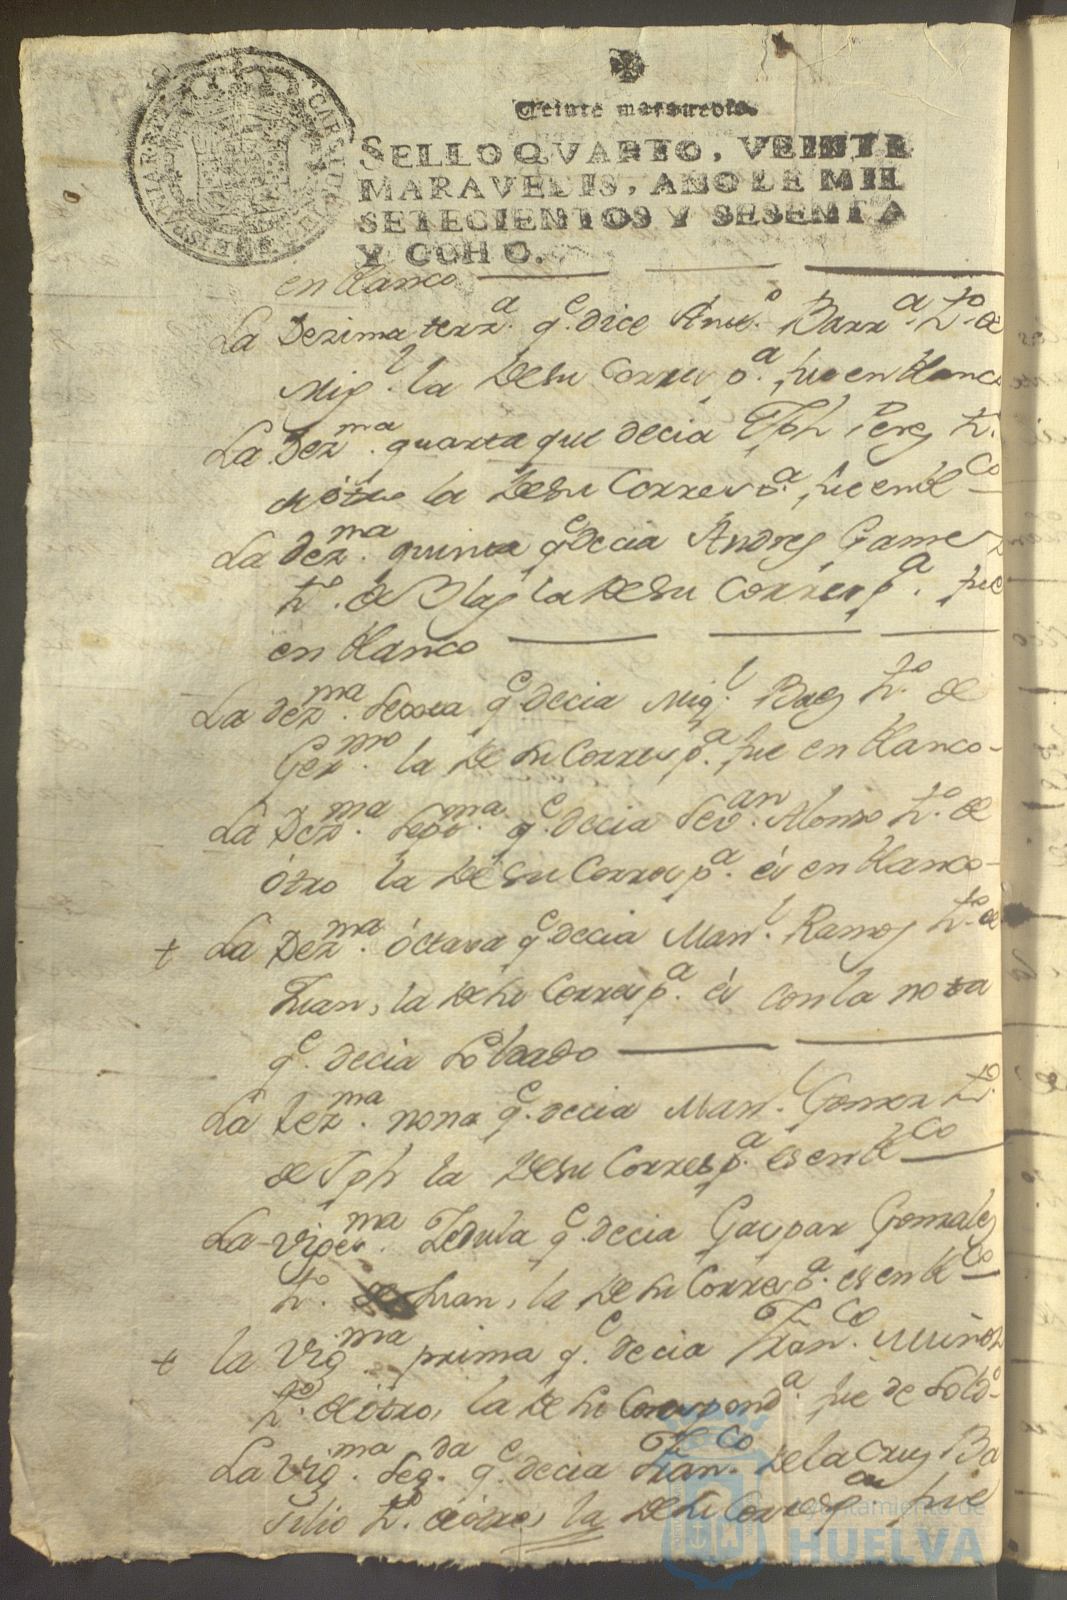 Veinte maravedis.
SELLO QVARTO, VEINTE
MARAVEDIS, AÑO DE MIL
SETECIENTOS Y SESENTA
Y OCHO.
en blanco
La Dezima terz.ª q.e dice Ant.o Barr.a h.o de
Mig.l la de su Corresp.a fue en blanco
La Dez.ma quarta que decia Jph Perez h.o
de otro la de su Corresp.a fue en bl.co
La dez.ma quinta q.e decia Andres Gomez
h.o de Blas la de su Corresp.a fue
en blanco
La dez.ma sexta q.e decia Mig.l Baez h.o de
Ger.mo la de su Corresp.a fue en blanco
La Dez.ma sept.ma q.e decia Sev.an Alonso h.o de
ótro la de su Corresp.a és en blanco
+ La Dez.ma óctava q.e decia Man.l Ramos h.o de
Juan, la de su Corresp.a és con la nota
q.e decia Soldado
La dez.ma nona q.e decia Man.l Gomez h.o
de Jph la de su Corresp.a es en bl.co
La viges.ma Zedula q.e decia Gaspar Gonzalez
h.o de Juan, la de su Corresp.a es en bl.co
+ la Vig.ma prima q.e decia Fran.co Muñoz
h.o de otro, la de su Correspond.a fue de Sold.o
La Vig.ma Seg.da q.e decia Fran.co de la Cruz Ba
silio h.o de otro, la de su Corresp.a fue
Ayuntamiento de
HUELVA